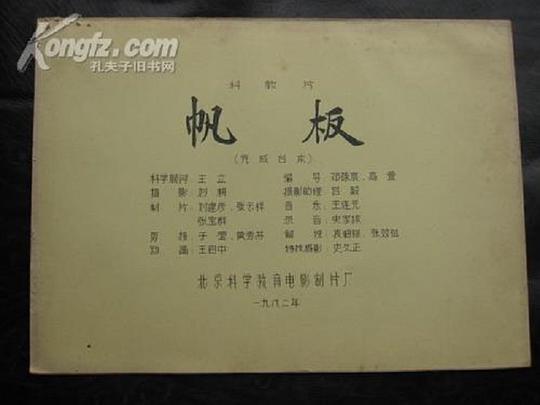 Kongfz.com
孔夫子旧书网
科教片
帆板
(完成台本)
科学顾问 王立 编导 邓葆宸、高萱
摄影 刘 摄影助理 吕毅
制片 刘建彦、张云祥 音乐 王连元
张宝群 录音 史家
剪接 于莹、黄秀芬 解说 张效
动画 王启中 特技摄影 史久正
北京科学教育电影制片厂
一九八二年